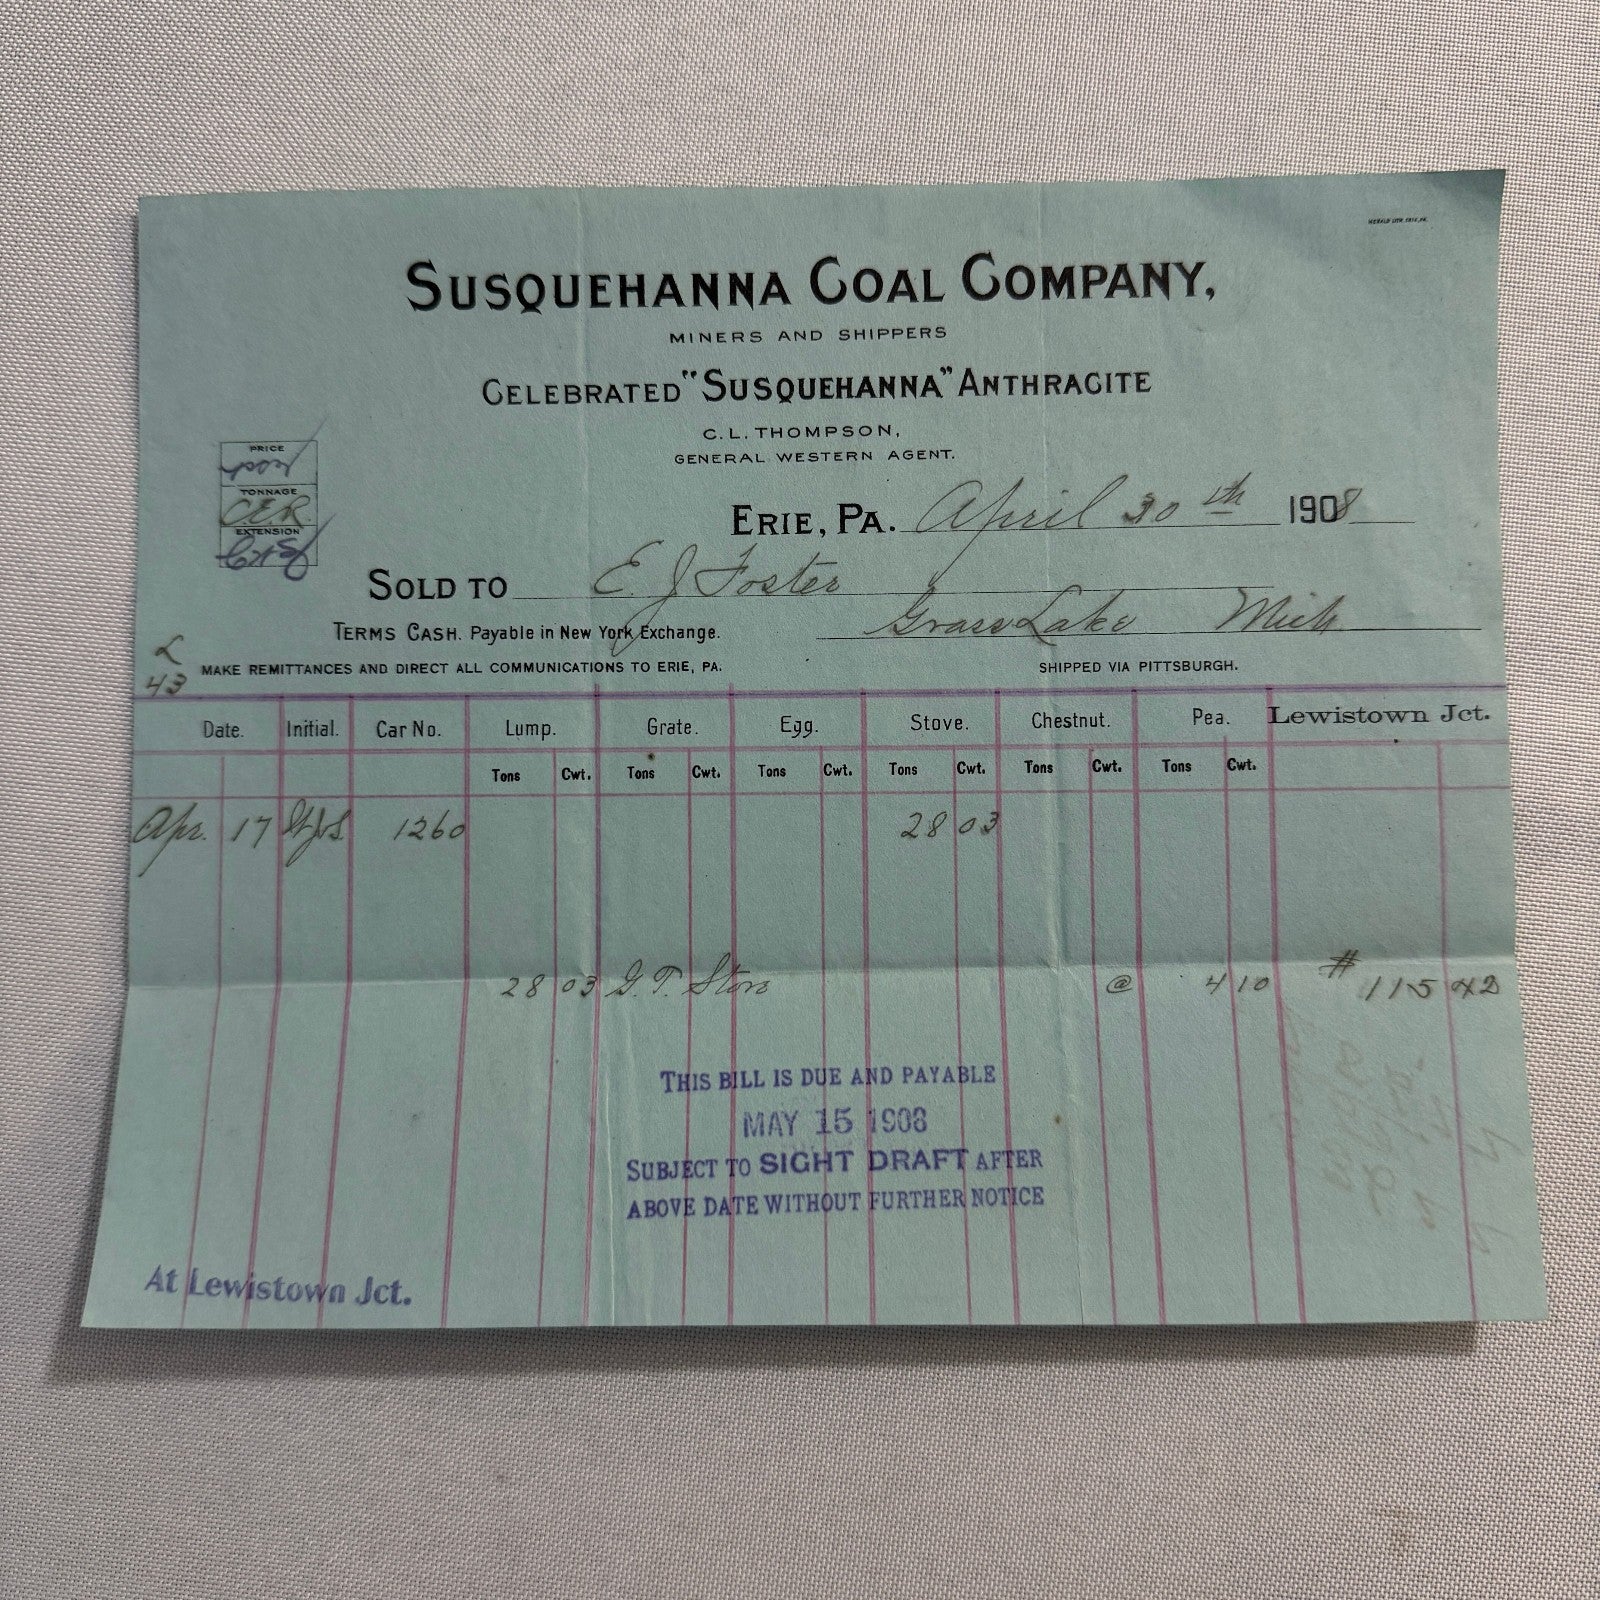 HERALD PTR. ERIE, PA.
SUSQUEHANNA COAL COMPANY,
MINERS AND SHIPPERS
CELEBRATED "SUSQUEHANNA" ANTHRACITE
C. L. THOMPSON,
GENERAL WESTERN AGENT.
PRICE
TONNAGE
C.E.R.
EXTENSION
ERIE, PA. April 30th 1908
SOLD TO E. J. Foster
TERMS CASH. Payable in New York Exchange. Grass Lake Mich
L
43
MAKE REMITTANCES AND DIRECT ALL COMMUNICATIONS TO ERIE, PA. SHIPPED VIA PITTSBURGH.
Date. Initial. Car No. Lump. Grate. Egg. Stove. Chestnut. Pea. Lewistown Jct.
Tons Cwt. Tons Cwt. Tons Cwt. Tons Cwt. Tons Cwt. Tons Cwt.
Apr. 17 1260 28 03
28 03 G. T. Stove @ 4 10 # 115 42
THIS BILL IS DUE AND PAYABLE
MAY 15 1908
SUBJECT TO SIGHT DRAFT AFTER
ABOVE DATE WITHOUT FURTHER NOTICE
At Lewistown Jct.